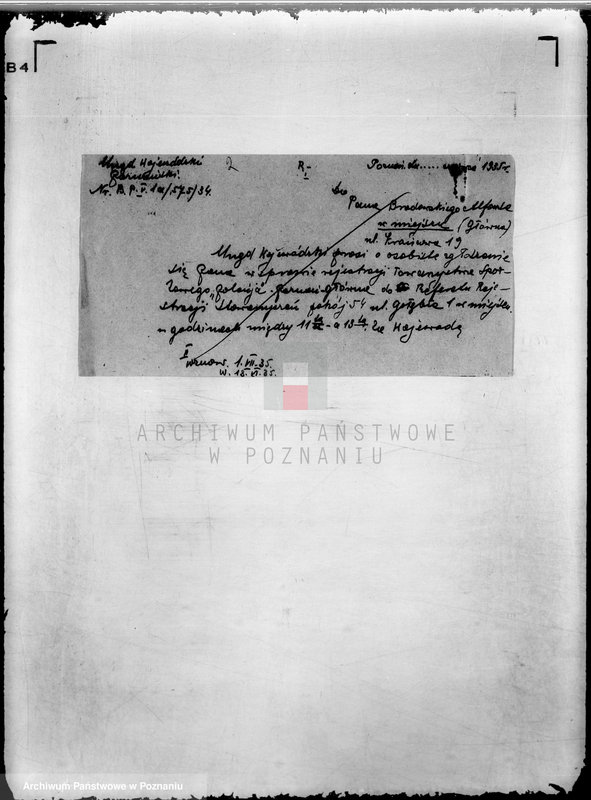 B4
Urząd Wojewódzki 2 R. Poznań, dn. ..... 1935 r.
Poznański.
Nr. B.P.V. 1a/575/34. Do
Pana Brodowskiego Alfonsa
w miejscu (Główna)
ul. Krańcowa 19
Urząd Wojewódzki prosi o osobiste zgłoszenie
się Pana w sprawie rejestracji Towarzystwa Spor-
towego "Polonja" Poznań-Główna do Referatu Reje-
stracji Stowarzyszeń pokój 54 ul. Gołębia 1 w miejscu
w godzinach między 11 - a 13 Za Wojewodę
wznow. 1.VII.35.
w. 15.VI.35.
ARCHIWUM PAŃSTWOWE
W POZNANIU
Archiwum Państwowe w Poznaniu